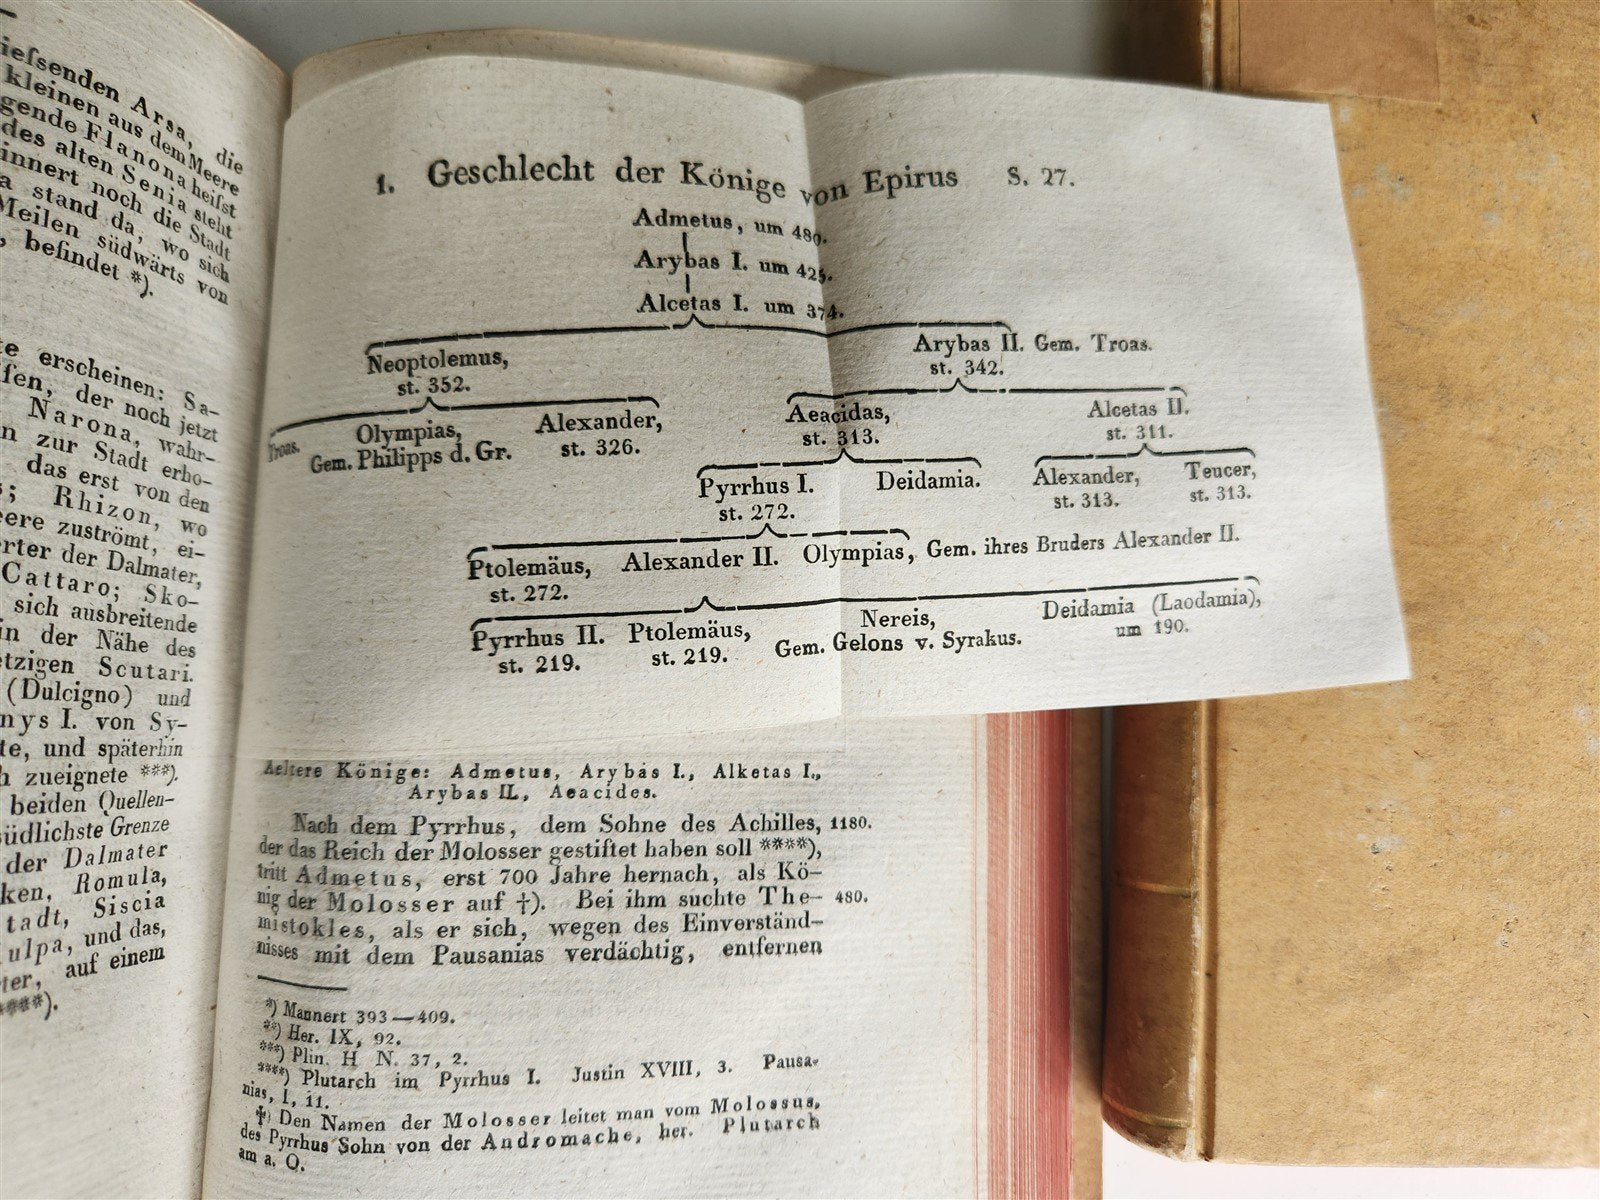 ieſsenden Arsa, die
kleinen aus dem Meere
gende Flanona heiſst
des alten Senia steht
innert noch die Stadt
a stand da, wo sich
Meilen südwärts von
, befindet *).
te erscheinen: Sa-
ſen, der noch jetzt
Narona, wahr-
n zur Stadt erho-
das erst von den
; Rhizon, wo
eere zuströmt, ei-
rter der Dalmater,
Cattaro; Sko-
sich ausbreitende
in der Nähe des
etzigen Scutari.
(Dulcigno) und
nys I. von Sy-
te, und späterhin
h zueignete ***).
beiden Quellen-
südlichste Grenze
der Dalmater
ken, Romula,
tadt, Siscia
ulpa, und das,
ter, auf einem
****).
1. Geschlecht der Könige von Epirus S. 27.
Admetus, um 480.
Arybas I. um 425.
Alcetas I. um 374.
Neoptolemus, Arybas II. Gem. Troas.
st. 352. st. 342.
Troas. Olympias, Alexander, Aeacidas, Alcetas II.
Gem. Philipps d. Gr. st. 326. st. 313. st. 311.
Pyrrhus I. Deidamia. Alexander, Teucer,
st. 272. st. 313. st. 313.
Ptolemäus, Alexander II. Olympias, Gem. ihres Bruders Alexander II.
st. 272.
Pyrrhus II. Ptolemäus, Nereis, Deidamia (Laodamia),
st. 219. st. 219. Gem. Gelons v. Syrakus. um 190.
Aeltere Könige: Admetus, Arybas I., Alketas I.,
Arybas II., Aeacides.
Nach dem Pyrrhus, dem Sohne des Achilles, 1180.
der das Reich der Molosser gestiftet haben soll ****),
tritt Admetus, erst 700 Jahre hernach, als Kö-
nig der Molosser auf †). Bei ihm suchte The- 480.
mistokles, als er sich, wegen des Einverständ-
nisses mit dem Pausanias verdächtig, entfernen
*) Mannert 393—409.
**) Her. IX, 92.
***) Plin. H N. 37, 2.
****) Plutarch im Pyrrhus I. Justin XVIII, 3. Pausa-
nias, I, 11.
†) Den Namen der Molosser leitet man vom Molossus,
des Pyrrhus Sohn von der Andromache, her. Plutarch
am a. O.